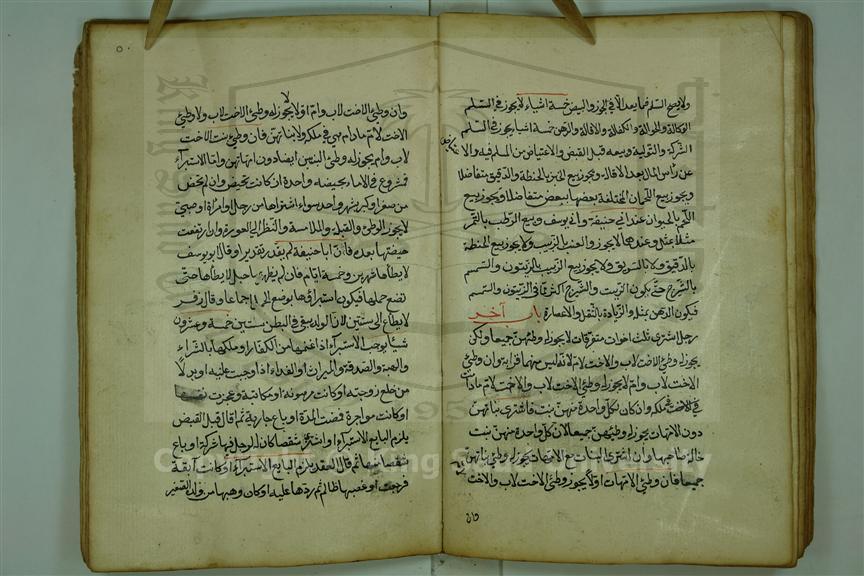 ولا يصح السلم فيما يعد الا في الجوز والبيض خمسة اشياء لا يجوز في السلم
الوكالة والحوالة والكفالة والاقالة والرهن خمسة اشياء يجوز في السلم
الشركة والتولية وبيعه قبل القبض والاعتياض من المسلم فيه والا
عن رأس المال بعد الاقالة ويجوز بيع الخبز بالحنطة والدقيق متفاضلا
ويجوز بيع اللحمان المختلفة بعضها ببعض متفاضلا ويجوز بيع
اللحم بالحيوان عند ابي حنيفة وابي يوسف وبيع الرطب بالتمر
مثلا بمثل وعندهما لا يجوز والعنب بالزبيب ولا يجوز بيع الحنطة
بالدقيق ولا بالسويق ولا يجوز بيع الزيت بالزيتون والسمسم
بالشيرج حتى يكون الزيت والشيرج اكثر مما في الزيتون والسمسم
فيكون الدهن بمثله والزيادة بالثقل والعصارة باب آخر
رجل اشترى ثلث اخوات متفرقات لا يجوز له وطئهن جميعا ولكن
يجوز له وطئ الاخت لاب والاخت لام لانه ليس منهما قرابة وان وطئ
الاخت لاب وام لا يجوز له وطئ الاخت لاب والاخت لام مادامت
في ملكه وان كان لكل واحدة منهن بنت فاشترى بناتهن
دون الامهات يجوز له وطئهن جميعا لان كل واحدة منهن بنت
خالة صاحبها وان اشترى البنات مع الامهات يجوز له وطئ بناتهن
جميعا فان وطئ الامهات اولا يجوز وطئ الاخت لاب والاخت
وان
وان وطئ الاخت لاب وام اولا يجوز له وطئ الاخت لاب ولا وطئ
الاخت لام مادام هي في ملكه ولا بناتهن فان وطئ بنت الاخت
لاب وام يجوز له وطئ البنتين ايضا دون امهاتهن واما الاستبراء
فمشروع في الاماء بحيضة واحدة ان كانت تحيض وان لم تحض
من صغر او كبر بشهر واحد سواء اشتراها من رجل او امرأة او صبي
لا يجوز الوطئ والقبلة والملامسة والنظر الى العورة وان ارتفعت
حيضتها بعد فان ابا حنيفة لم يقدر تقديرا وقال ابو يوسف
لا يطأها شهرين وخمسة ايام فان لم يظهر بها حبل لا يطأها حتى
تضع حملها فيكون استبراؤها بوضع الحمل اجماعا وقال زفر
لا يطأ الى سنتين لان الولد يبقى في البطن سنتين خمسة وعشرون
شيئا يوجب الاستبراء اذا غنمها من الكفار او ملكها بالشراء
والهبة والصدقة والميراث او الفداء اذا وجبت عليه او بدلا
من خلع زوجته او كانت مرهونة او مكاتبة وعجزت نفسها
او كانت مواجرة فمضت المدة او باع جارية ثم اقال قبل القبض
يلزم البايع الاستبراء واشترى شقصا كان لرجل فيها شركة او باع
شقصا منها ثم قال العقد يلزم البايع الاستبراء او كانت آبقة
فرجعت او غصبها ظالم ثم ردها عليه او كان وهبها من ولده الصغير